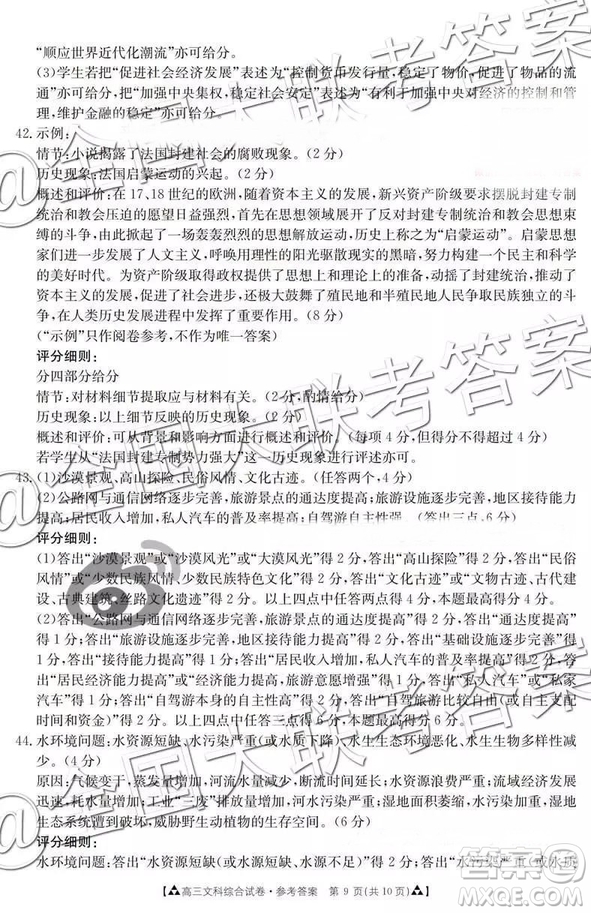 “顺应世界近代化潮流”亦可给分。
(3)学生若把“促进社会经济发展”表述为“控制货币发行量,稳定了物价,促进了物品的流
通”亦可给分,把“加强中央集权,巩固统治”表述为“有利于加强中央对经济的控制和管
理,维护金融的稳定”亦可给分。
42. 示例:
情节:小说揭露了法国封建社会的腐败现象。(2 分)
历史现象:法国启蒙运动的兴起。(2 分)
概述和评价:在 17、18 世纪的欧洲,随着资本主义的发展,新兴资产阶级要求摆脱封建专制
统治和教会压迫的愿望日益强烈,首先在法国展开了反封建专制统治和教会思想束
缚的斗争,由此掀起了一场轰轰烈烈的思想解放运动,历史上称之为“启蒙运动”。启蒙思想
家们进一步发展了人文主义,呼唤用理性的阳光驱散现实的黑暗,构建了一个民主和科学
的美好时代。为资产阶级取得政权提供了思想上和理论上的准备,动摇了封建统治,推动了
资本主义的发展,还极大鼓舞了殖民地和半殖民地人民为争取民族独立的斗
争,在人类历史发展进程中发挥了重要的作用。(8 分)
(“示例”只作阅卷参考,不作为唯一答案)
评分细则:
分四部分给分
情节:对材料细节提取应与材料有关。(2 分,酌情给分)
历史现象:以上细节反映的历史现象。(2 分)
概述和评价:可从背景和影响方面展开。(每项 4 分,酌情给分)
若学生从“法国封建专制势力强大”这一历史现象进行评述亦可。
43. (1)沙漠景观、高山探险、民俗风情、文化古迹。(任答两个,4 分)
(2)公路网与通信网络逐步完善,旅游景点的通达度提高;旅游设施逐步完善,接待能力提
高;居民收入增加,私人汽车的普及率提高;自驾游自主性强。(答出三点,6 分)
评分细则:
(1)答出“沙漠景观”或“沙漠风光”或“大漠风光”得 2 分,答出“高山探险”得 2 分,答出“民俗
风情”或“少数民族风情”或“少数民族特色文化”得 2 分,答出“文化古迹”或“文物古迹、古代建
设、古典建筑、丝路文化遗迹”得 2 分。以上四点中任答两点得 4 分,本题最高得分 4 分。
(2)答出“公路网与通信网络逐步完善”得 1 分,答出“旅游景点的通达度提高”得
1 分;答出“旅游设施逐步完善”得 1 分,答出“接待能力提高”或“基础设施逐步完善”得
1 分;答出“居民收入增加,私人汽车的普及率提高”得 2 分,答出“居民收入增加”得
1 分,答出“居民经济能力提高,旅游意愿增强”得 1 分,答出“私人汽车的普及”或“私
家汽车”得 1 分;答出“自驾游自主性强”或“自驾旅游比较自由(或自主支配时间和资金)”得 2 分。
以上四点中任答三点得 6 分,本题最高得分 6 分。
44. 水环境问题:水资源短缺、水污染严重(或水质下降)、水生生态环境恶化、水生生物多样性减
少。(4 分)
原因:气候变干,蒸发量增加,河流水量减少;人类不合理利用,水资源浪费严重;流域经济发展
迅速,耗水量增加;工业“三废”排放量增加,河水污染严重;水环境污染严重,湿地
生态系统遭到破坏,威胁野生动植物的生存空间。(6 分)
评分细则:
水环境问题:答出“水资源短缺(或水量短缺)”得 2 分,答出“水污染严重(或水质
【高三文科综合试卷·参考答案 第 9 页(共 10 页)】
@全国大联考答案